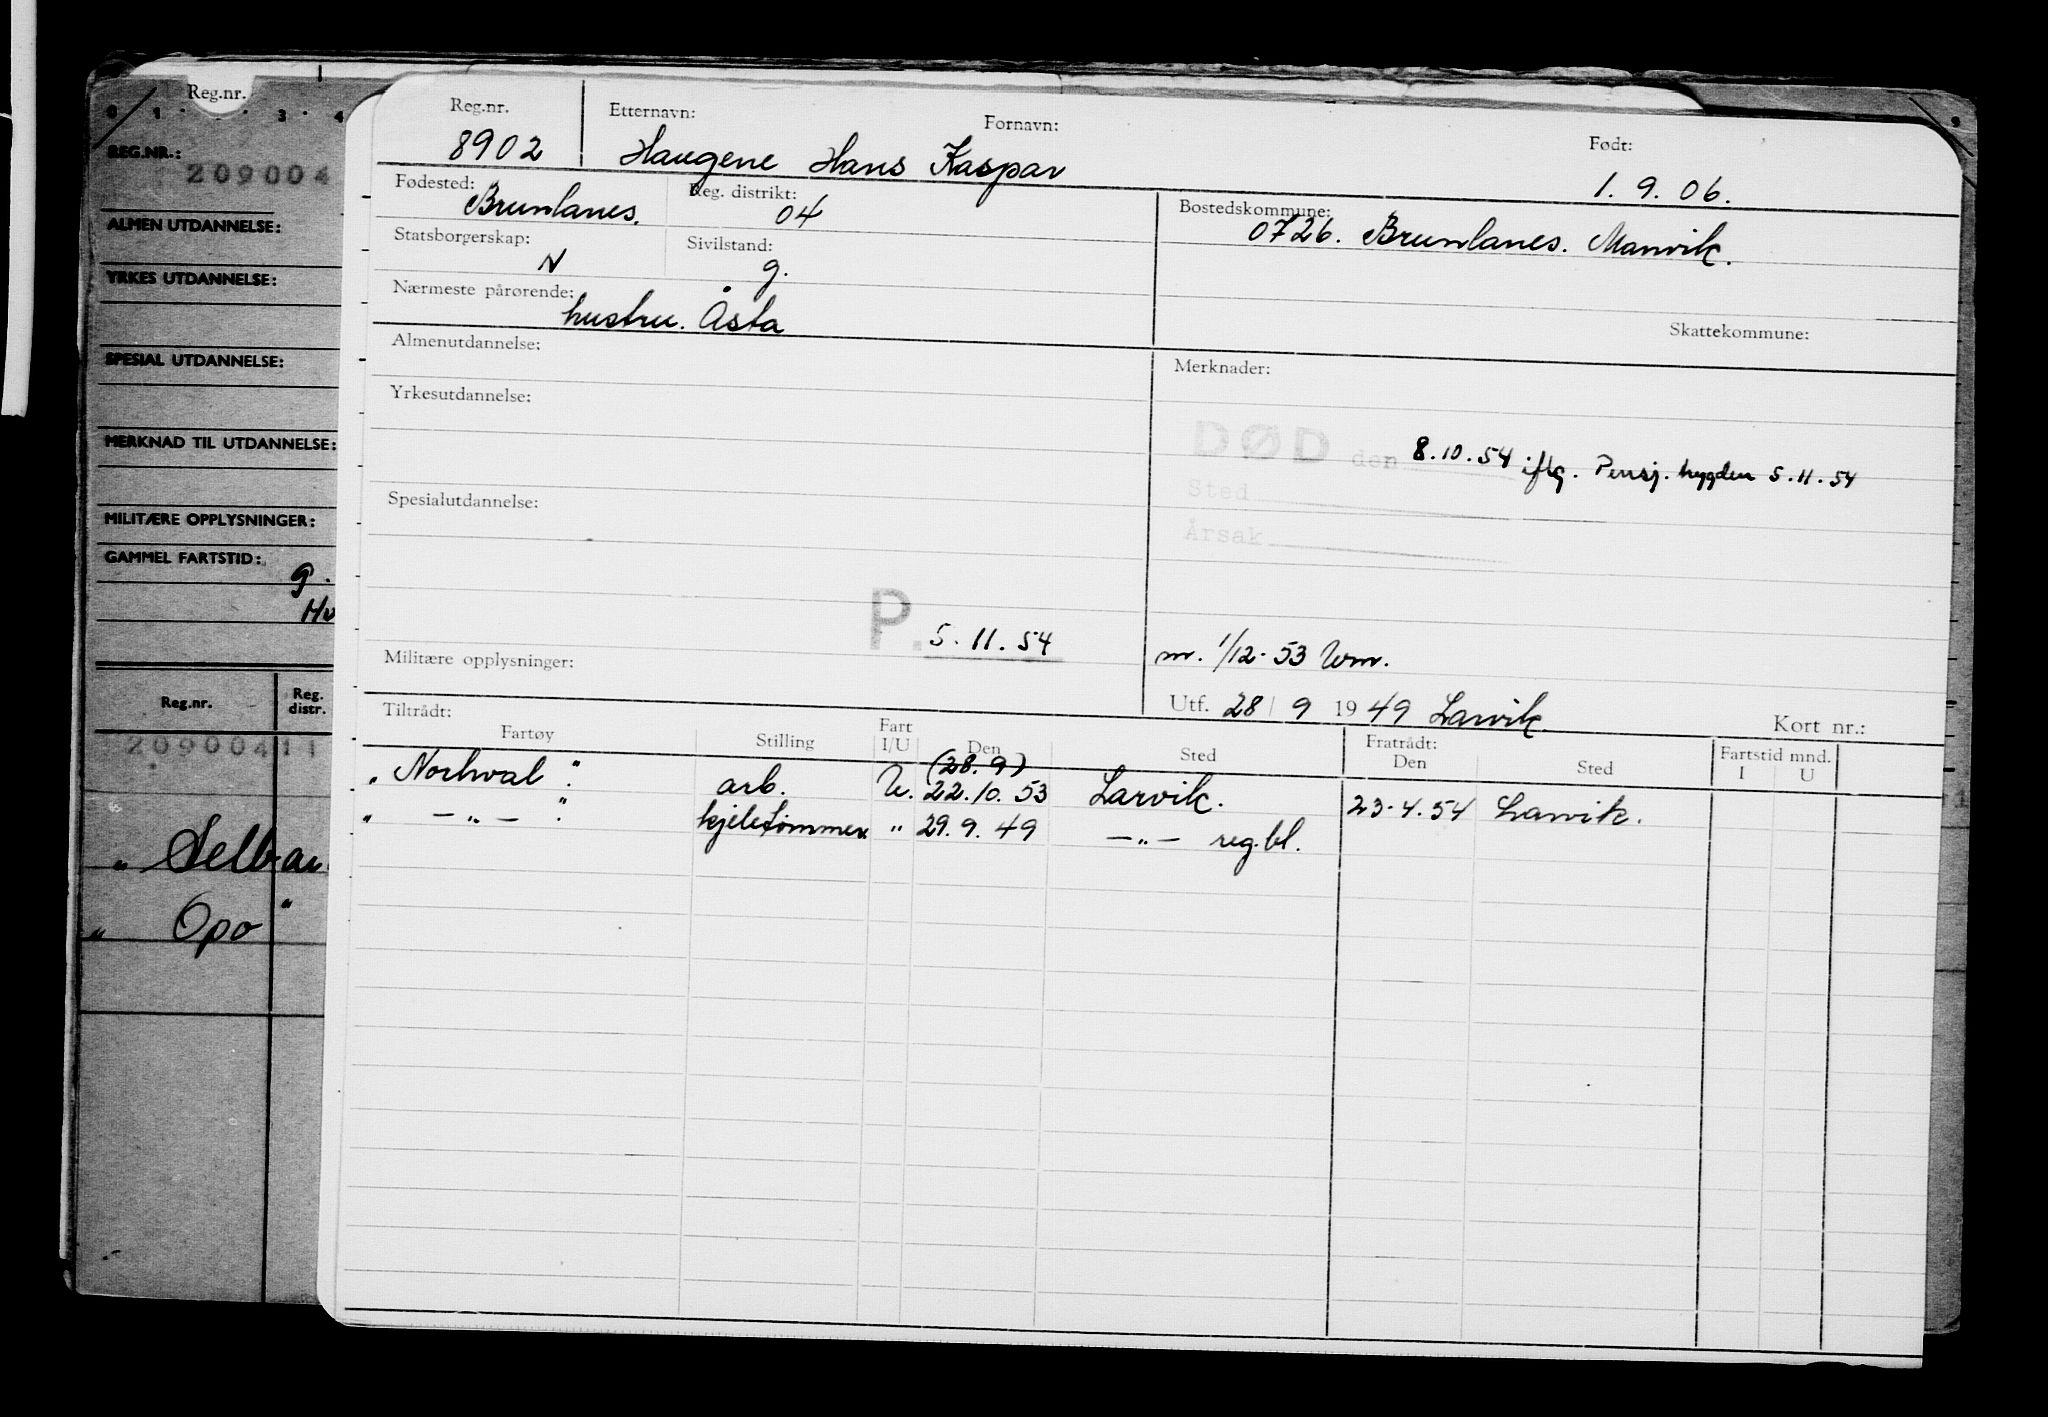 Reg.nr.
0 1 3 4
REG.NR.:
209004
ALMEN UTDANNELSE:
YRKES UTDANNELSE:
SPESIAL UTDANNELSE:
MERKNAD TIL UTDANNELSE:
MILITÆRE OPPLYSNINGER:
GAMMEL FARTSTID:
g.
Reg.nr. Reg. distr.
20900411
" Selbar
" Opo "
9
Reg.nr. Etternavn: Fornavn: Født:
8902 Haugene Hans Kaspar 1.9.06.
Fødested: Brunlanes. Reg. distrikt: 04 Bostedskommune: 0726. Brunlanes. Manvik.
Statsborgerskap: N Sivilstand: g.
Nærmeste pårørende: hustru. Åsta
Skattekommune:
Almenutdannelse: Merknader:
Yrkesutdannelse:
DØD den 8.10.54 iflg. Pensj. trygden 5.11.54
Sted
Årsak
Spesialutdannelse:
P. 5.11.54
Militære opplysninger: m. 1/12-53 Wm.
Utf. 28/9 1949 Larvik. Kort nr.:
Tiltrådt: Fratrådt:
Fartøy Stilling Fart I/U Den Sted Den Sted Fartstid mnd. I U
(28.9)
" Norhval " arb. U. 22.10.53 Larvik. 23.4.54 Larvik.
" — " — " kjeletømmer " 29.9.49 — " — reg.bl.